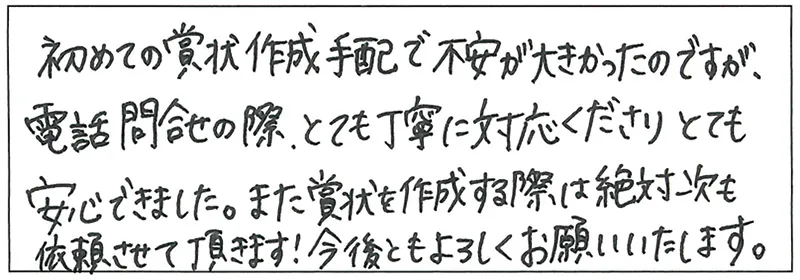 初めての賞状作成手配で不安が大きかったのですが、
電話問合せの際、とても丁寧に対応くださりとても
安心できました。また賞状を作成する際は絶対次も
依頼させて頂きます！今後ともよろしくお願いいたします。